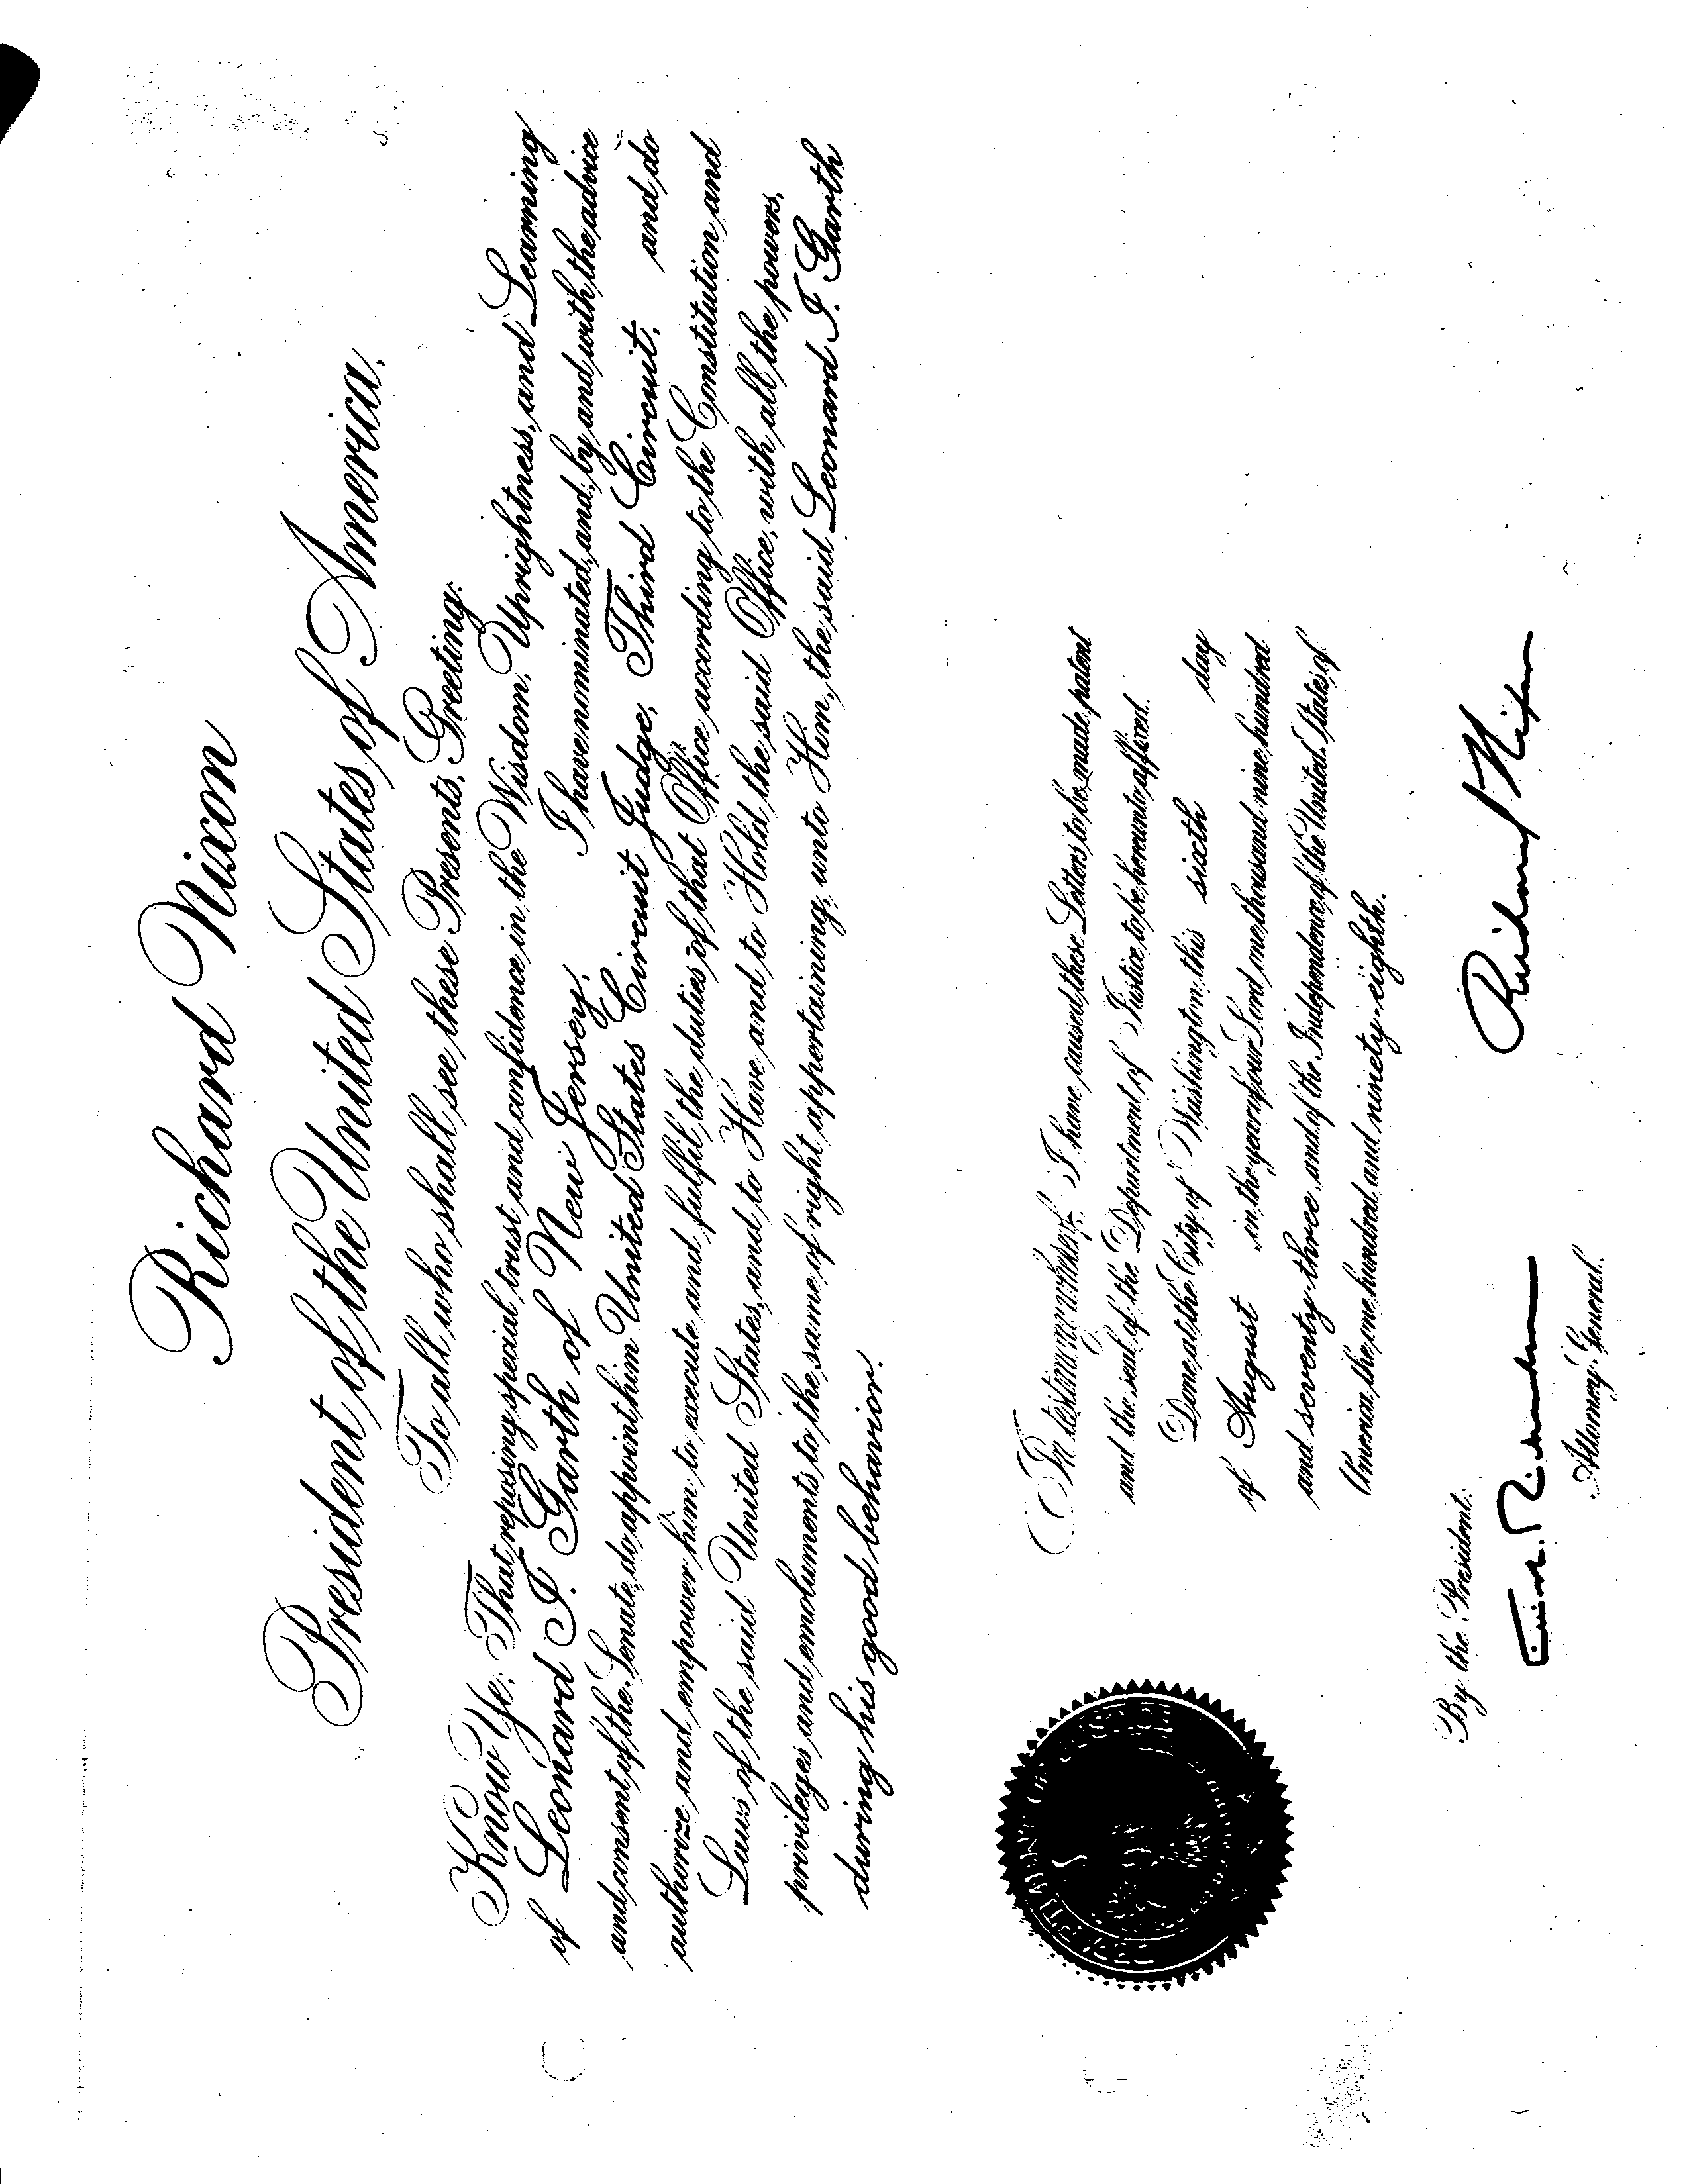 Richard Nixon
President of the United States of America,
To all who shall see these Presents, Greeting:
Know Ye; That reposing special trust and confidence in the Wisdom, Uprightness, and Learning
of Leonard I. Garth of New Jersey, I have nominated, and, by and with the advice
and consent of the Senate, do appoint him United States Circuit Judge, Third Circuit, and do
authorize and empower him to execute and fulfil the duties of that Office according to the Constitution and
Laws of the said United States, and to Have and to Hold the said Office, with all the powers,
privileges and emoluments to the same of right appertaining, unto Him, the said Leonard I. Garth
during his good behavior.
In testimony whereof, I have caused these Letters to be made patent
and the seal of the Department of Justice to be hereunto affixed.
Done at the City of Washington this sixth day
of August in the year of our Lord one thousand nine hundred
and seventy-three, and of the Independence of the United States of
America the one hundred and ninety-eighth.
Richard Nixon
By the President:
Attorney General.